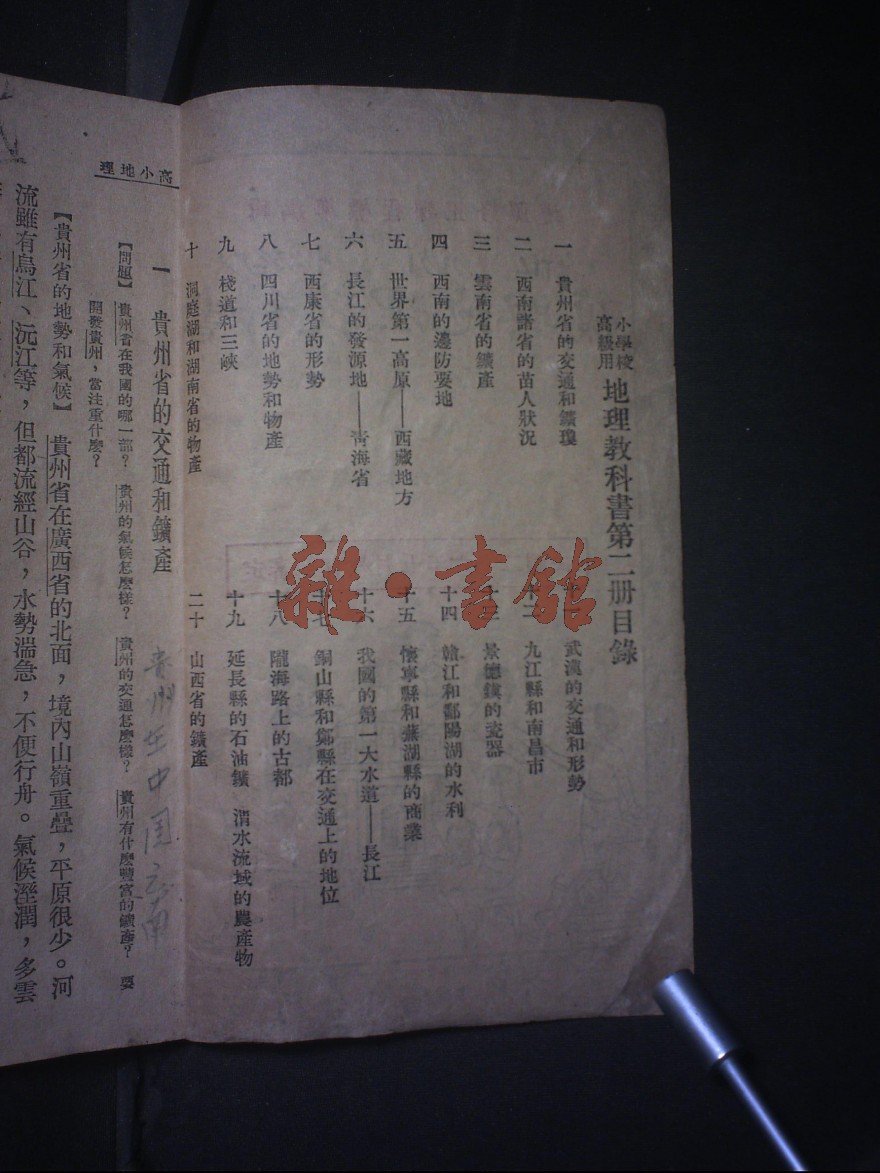 小學校
高級用
地理教科書第二冊目錄
一 貴州省的交通和鑛瓊
二 西南諸省的苗人狀況
三 雲南省的鑛產
四 西南的邊防要地
五 世界第一高原——西藏地方
六 長江的發源地——青海省
七 西康省的形勢
八 四川省的地勢和物產
九 棧道和三峽
十 洞庭湖和湖南省的物產
武漢的交通和形勢
十二 九江縣和南昌市
十三 景德鎮的瓷器
十四 贛江和鄱陽湖的水利
十五 懷寧縣和蕪湖縣的商業
十六 我國的第一大水道——長江
十七 銅山縣和鄭縣在交通上的地位
十八 隴海路上的古都
十九 延長縣的石油鑛 渭水流域的農產物
二十 山西省的鑛產
雜·書館
高小地理
一 貴州省的交通和鑛產
貴州在中国云南
【問題】 貴州省在我國的哪一部？ 貴州的氣候怎麼樣？ 貴州的交通怎麼樣？ 貴州有什麼豐富的鑛產？ 要
開發貴州，當注重什麼？
【貴州省的地勢和氣候】 貴州省在廣西省的北面，境內山嶺重疊，平原很少。河
流雖有烏江、沅江等，但都流經山谷，水勢湍急，不便行舟。氣候溼潤，多雲